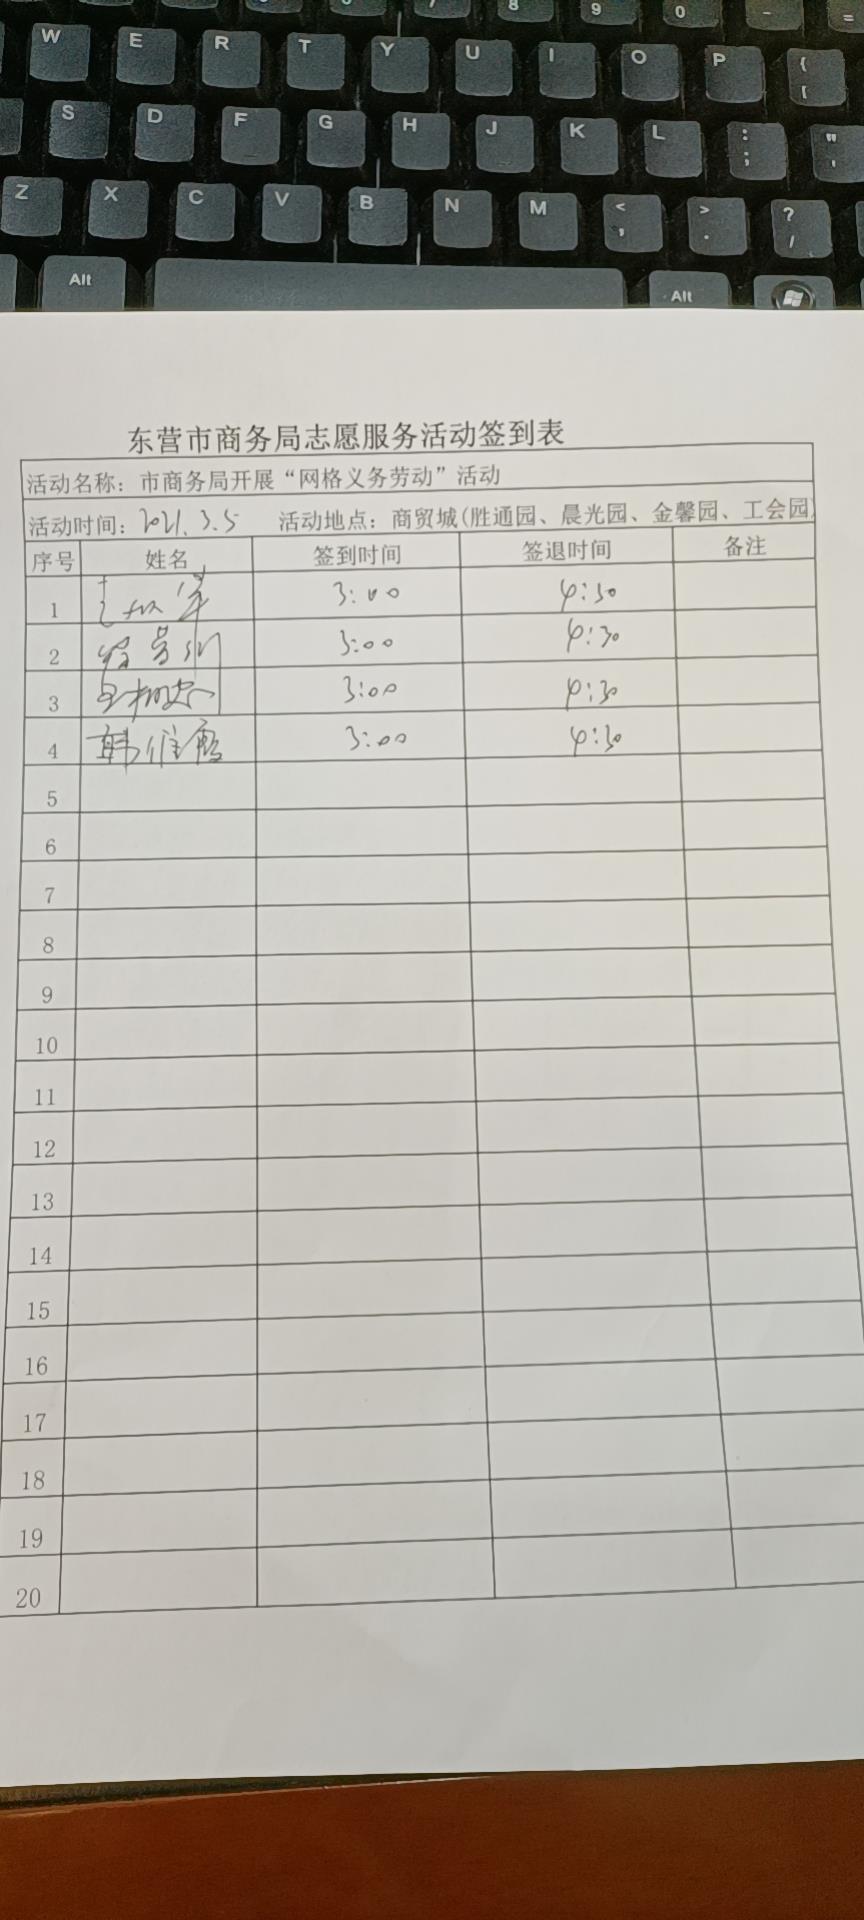 W E R T Y U I O P { [
S D F G H J K L : ; " '
Z X C V B N M < , > . ? /
Alt Alt
东营市商务局志愿服务活动签到表
活动名称：市商务局开展“网格义务劳动”活动
活动时间：2021.3.5 活动地点：商贸城(胜通园、晨光园、金馨园、工会园)
序号 姓名 签到时间 签退时间 备注
1 3:00 4:30
2 3:00 4:30
3 3:00 4:30
4 3:00 4:30
5
6
7
8
9
10
11
12
13
14
15
16
17
18
19
20